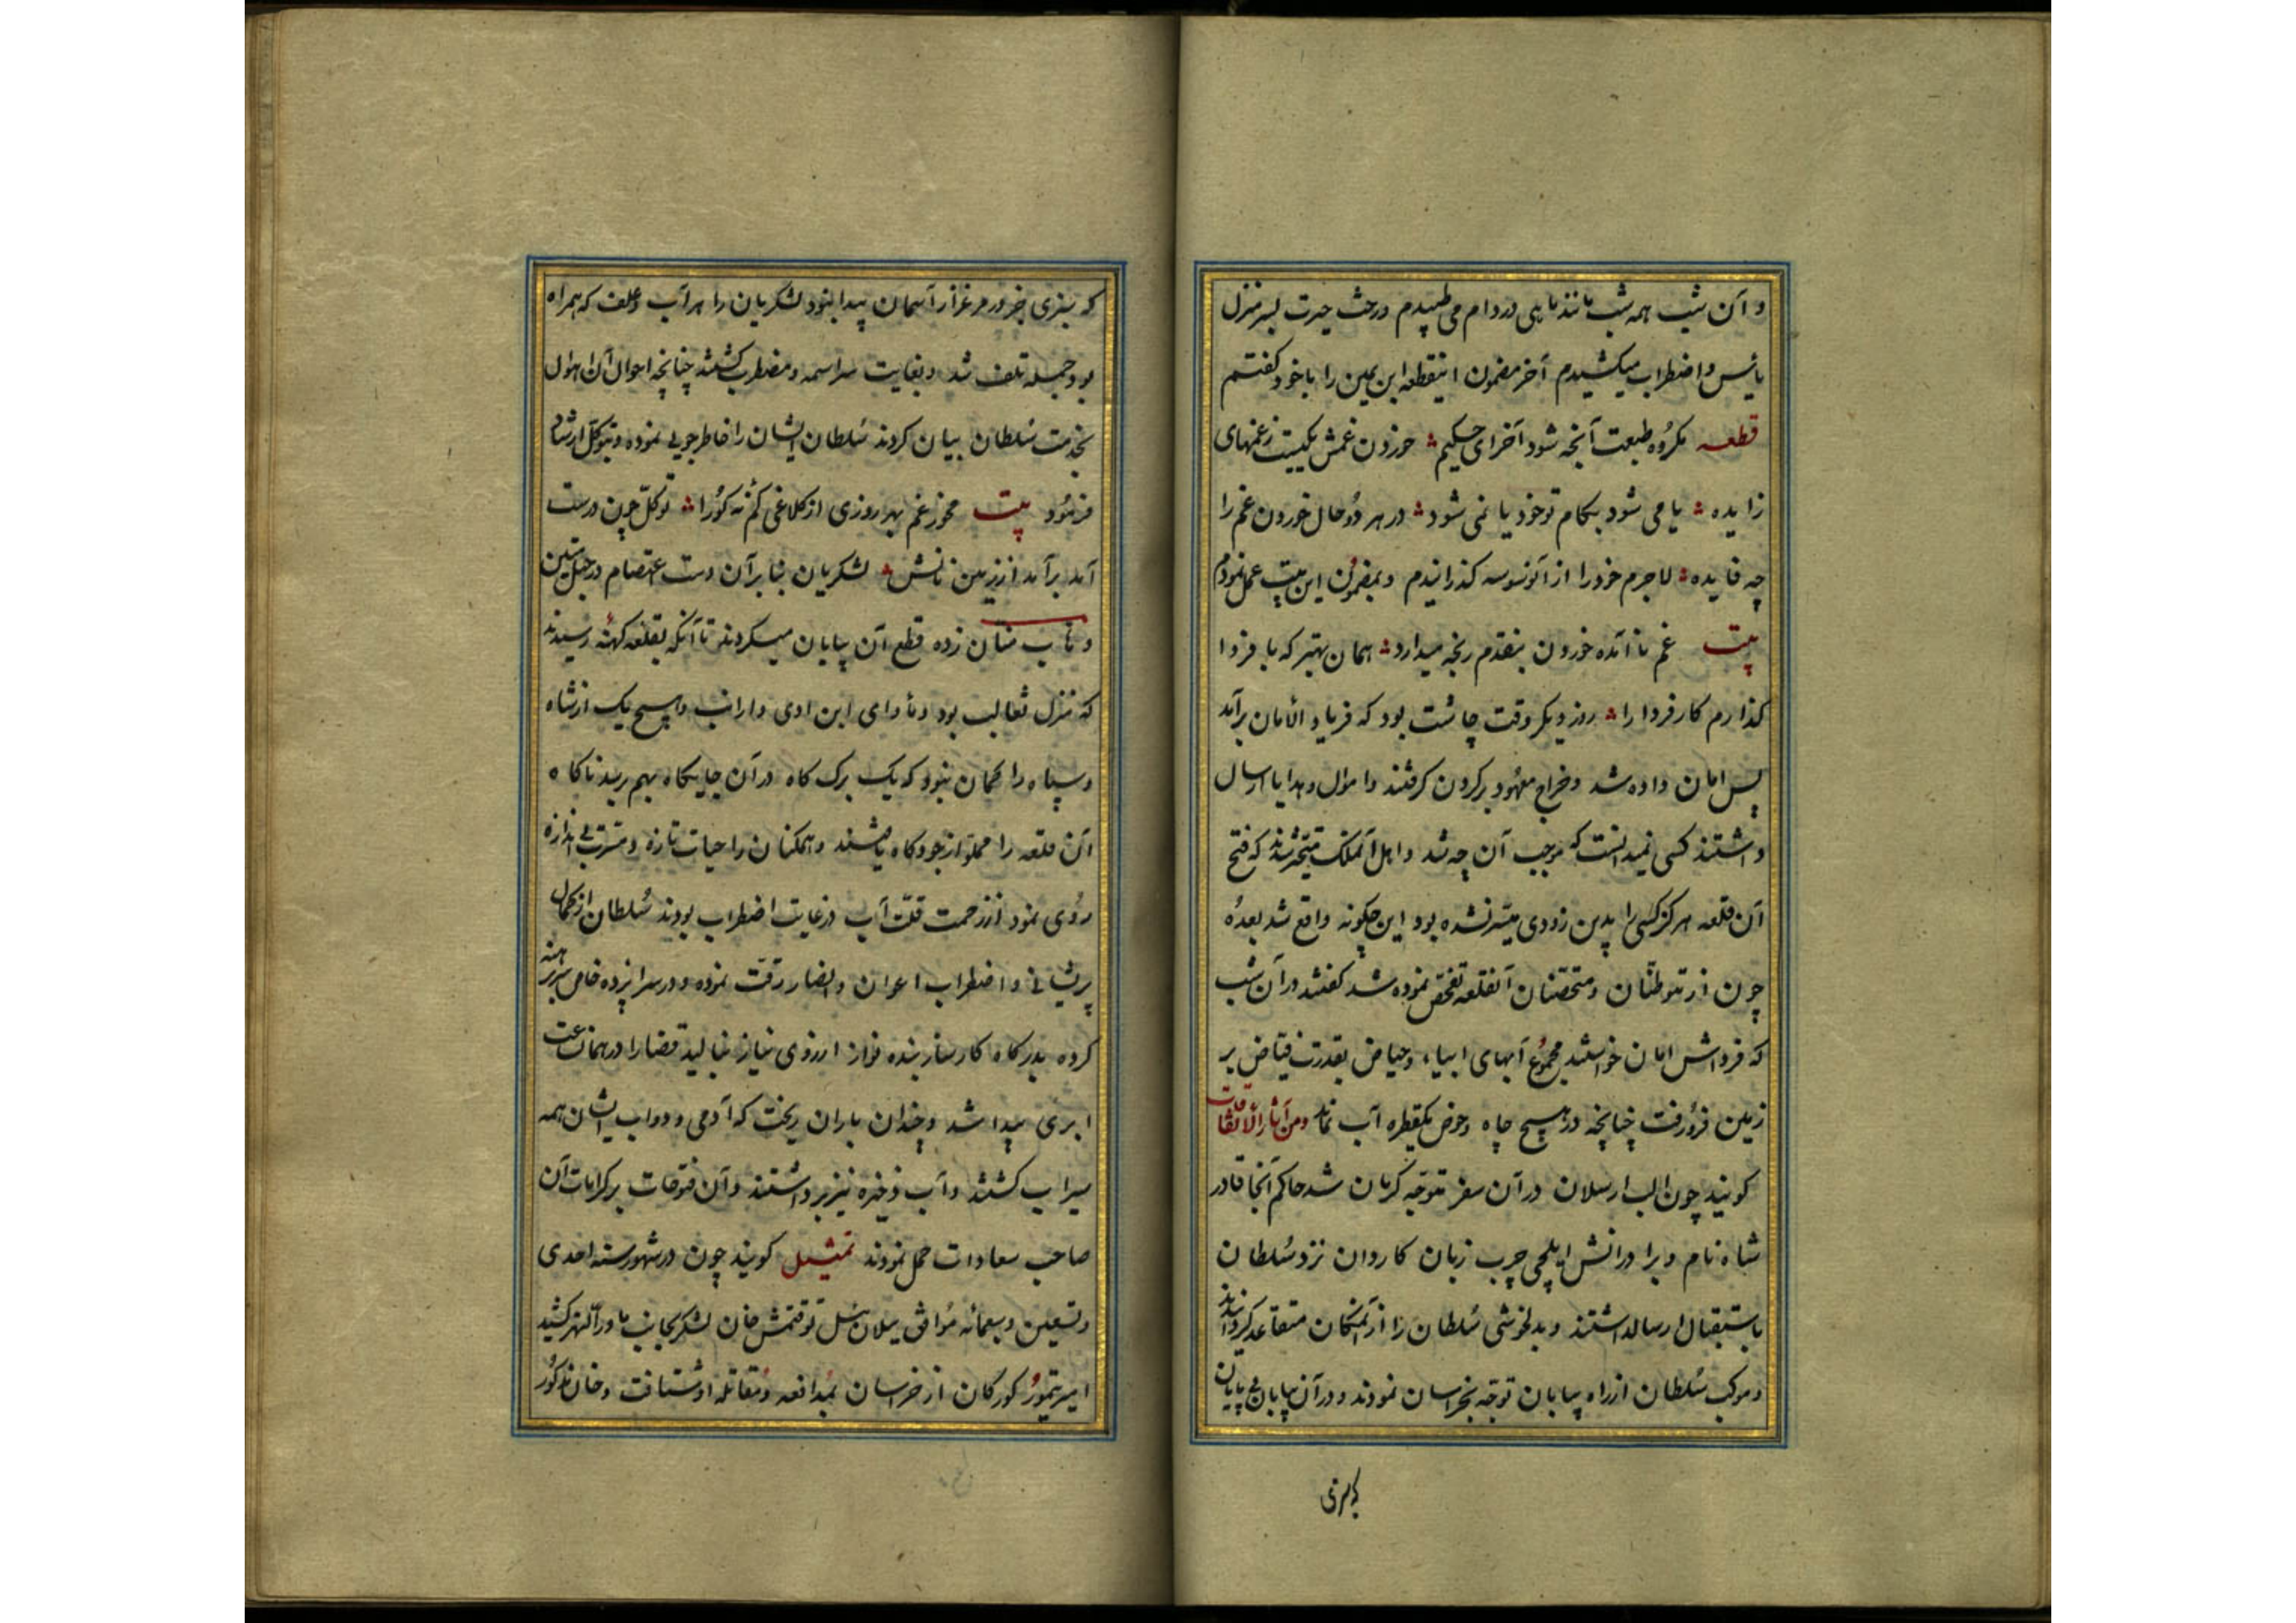 و آن شب همه شب مانند ماهی در دام می طپیدم و رخت حیرت بسر منزل
یأس و اضطراب میکشیدم آخر مضمون اینقطعه ابن یمین را با خود گفتم
قطعه مکروه طبعت آنچه شود آخر ای حکیم خوردن غمش یکیست زغمهای
زایده یا می شود بکام تو خود یا نمی شود در هر دو حال خوردن غم را
چه فایده لاجرم خود را از آنوسوسه کذرانیدم و بمضمون این بیت عمل نمودم
بیت غم ناآمده خوردن بنقدم رنجه میدارد همان بهتر که با فردا
کذارم کار فردا را روز دیکر وقت چاشت بود که فریاد الامان برآمد
پس امان داده شد و خراج معهود بر کردن کرفتند و اموال و هدایا ارسال
داشتند کسی نمیدانست که موجب آن چه شد و اهل آنملک متحیر شدند که فتح
آن قلعه هرکز کسی را بدین زودی میسر نشده بود این چکونه واقع شد بعده
چون از متوطنان و متحصنان آنقلعه تفحص نموده شد کفتند در آن شب
که فرداش امان خواستند مجموع آبهای ابیاء و حیاض بقدرت فیاض بر
زمین فرو رفت چنانچه در هیچ چاه و حوض یکقطره آب نماند ومن آثار الاتفاقات
کویند چون الب ارسلان در آن سفر متوجه کرمان شد حاکم آنجا قادر
شاه نام و برادرانش ایلچی چرب زبان کاردان نزد سلطان
باستقبال ارسالداشتند و بدلخوشی سلطان را از آنمکان متقاعد کردانیدند
و موکب سلطان از راه بیابان توجه بخراسان نمودند و در آن بیابان بی پایان
که سبزی
که سبزی جز در مرغزار آسمان پیدا نبود لشکریان را هر آب و علف که همراه
بود جمله تلف شد و بغایت سراسمه و مضطرب کشتند چنانچه احوال آن اهوال
بخدمت سلطان بیان کردند سلطان ایشان را خاطرجویی نموده و بتوکل ارشاد
فرمود بیت مخور غم بهر روزی از کلاغی کم نه کورا توکل چون درست
آمد برآمد از زمین نانش لشکریان بنابر آن دست اعتصام در حبل متین
و تاب منان زده قطع آن بیابان میکردند تا آنکه بقلعه کهنه رسیدند
که منزل ثعالب بود و مأوای ابن اوی و ارانب و هیچ یک از شاه
و سپاه را کمان نبود که یک برک کاه در آن جایکاه بهم رسد ناکاه
آن قلعه را مملو از جو و کاه یافتند و همکنان را حیات تازه و مسرت بی اندازه
روی نمود از زحمت قلت آب در غایت اضطراب بودند سلطان از کمال
پریشانی و اضطراب اعوان و انصار رقت نموده و در سراپرده خاص سر برهنه
کرده بدرکاه کارساز بنده نواز از روی نیاز بنالید قضارا در همانساعت
ابری پیدا شد و چندان باران ریخت که آدمی و دواب ایشان همه
سیراب کشتند و آب ذخیره نیز برداشتند و آن فتوحات بر کرامات آن
صاحب سعادات حمل نمودند تمثیل کویند چون در شهور سنه احدی
و تسعین و سبعمائه موافق ییلان ئیل توقتمش خان لشکر بجانب ماوراءالنهر کشید
امیر تیمور کورکان از خراسان بمدافعه و مقاتله او شتافت و خان مذکور